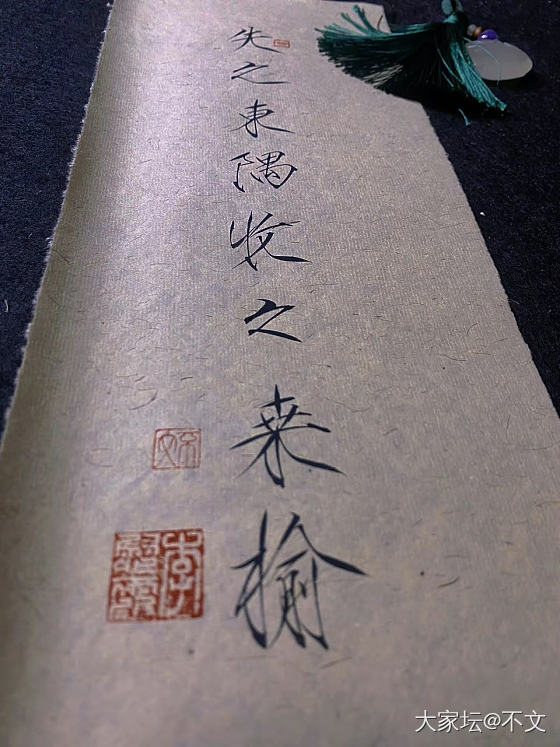 失之東隅收之桒榆
大家坛@不文